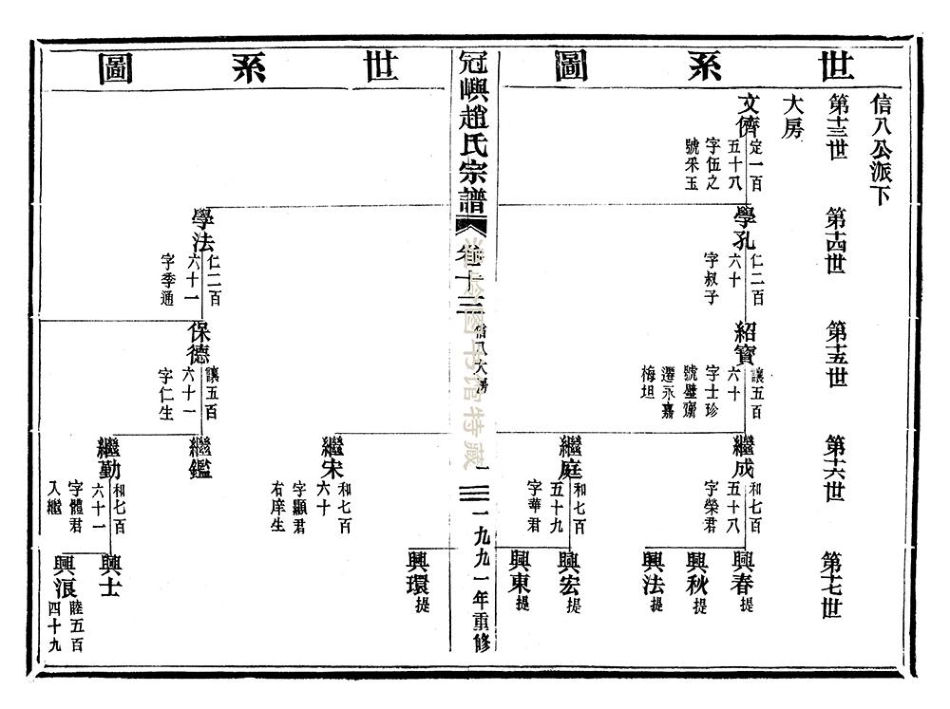 世系圖
信八公派下
第十三世
第十四世
第十五世
第十六世
第十七世
大房
文儕
定一百
五十八
字伍之
號采玉
學孔
仁二百
六十
字叔子
紹寶
讓五百
六十
字士珍
號璧齋
遷永嘉
梅坦
繼成
和七百
五十八
字榮君
興春 提
興秋 提
興法 提
繼庭
和七百
五十九
字華君
興宏 提
興東 提
冠嶼趙氏宗譜
卷十三
信八大房
一九九一年重修
世系圖
繼宋
和七百
六十
字顯君
右庠生
興環 提
學法
仁二百
六十一
字季通
保德
讓五百
六十一
字仁生
繼鑑
繼勤
和七百
六十一
字體君
入繼
興士
興浪
陸五百
四十九